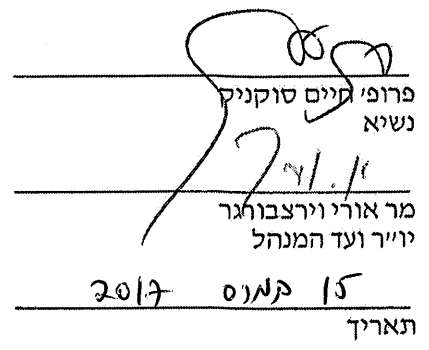 פרופ׳ חיים סוקניק
נשיא
מר אורי וירצבורגר
יו״ר ועד המנהל
15 במרס 2017
תאריך